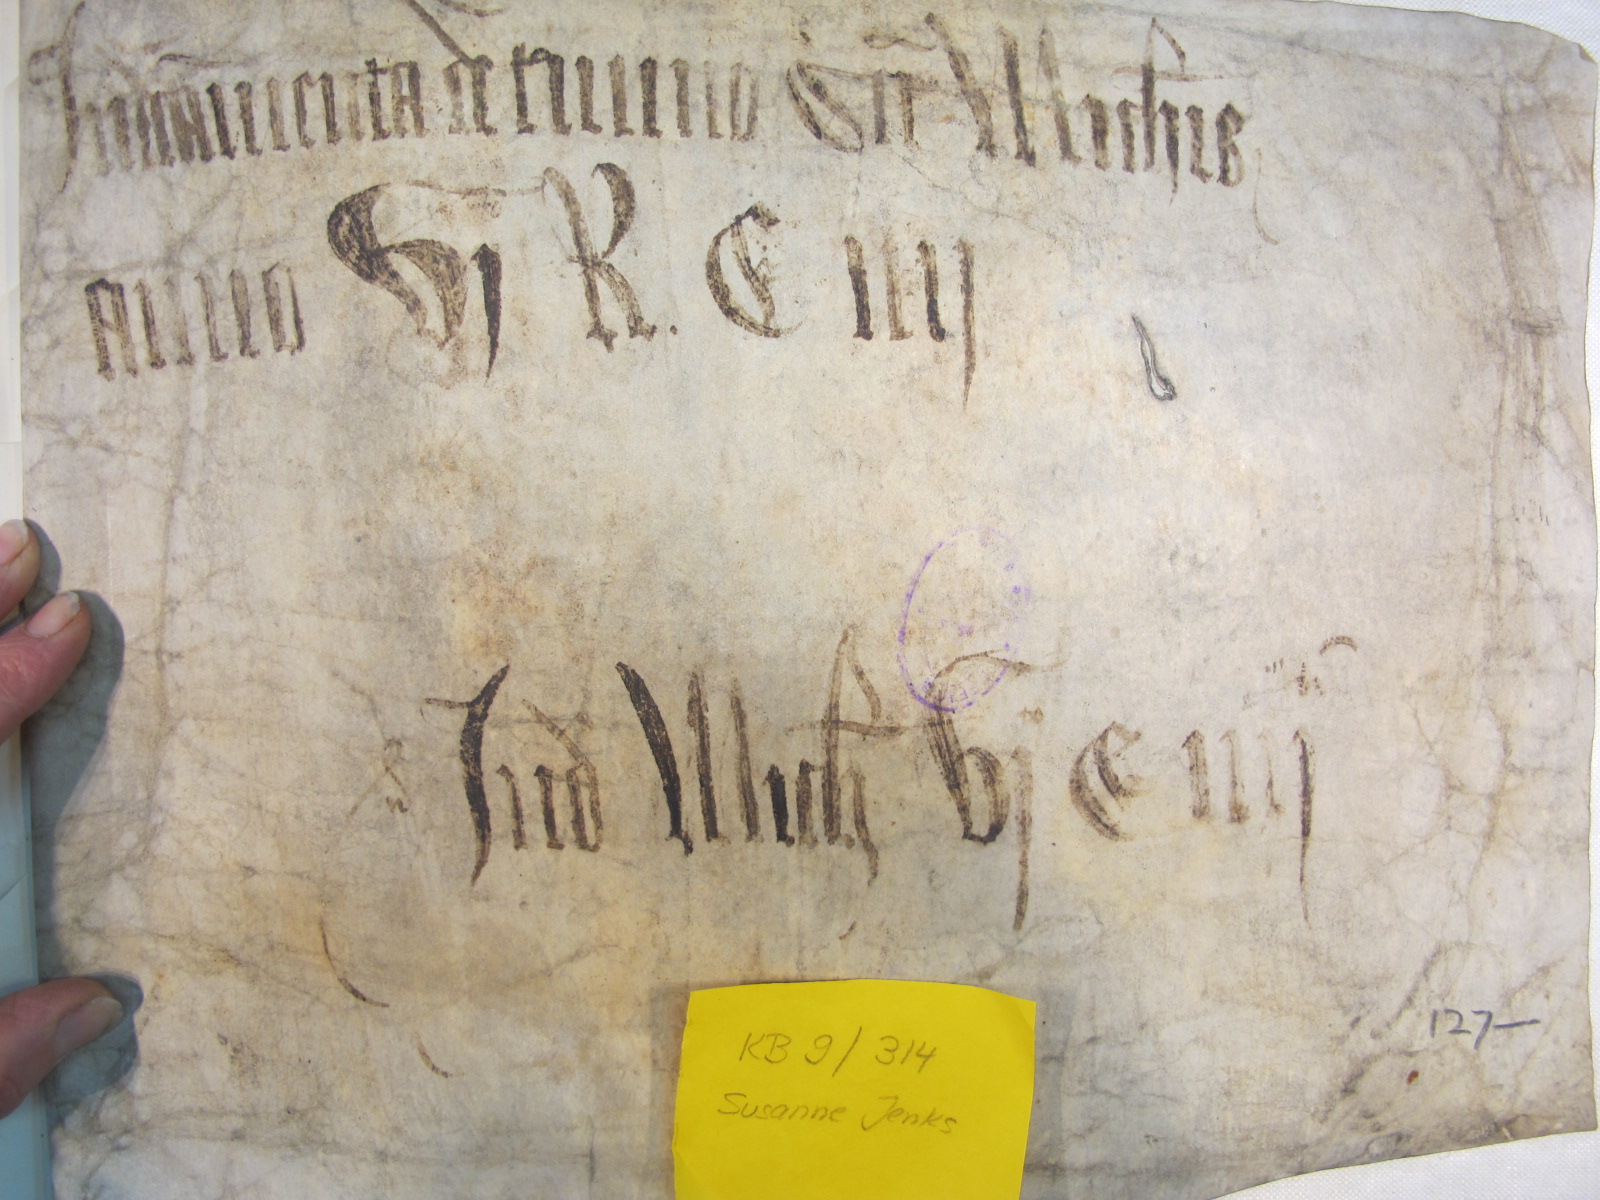 Indictamenta de termino Sci Michis
anno vj R. E iiij
Ind Mich vj E iiij
127
KB 9/314
Susanne Jenks